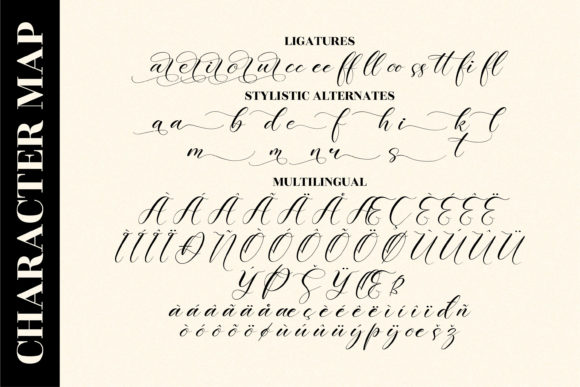 CHARACTER MAP
LIGATURES
ar er ir or ur cc ee ff ll oo ss tt fi fl
STYLISTIC ALTERNATES
a a b d e f h i k l
m m n r s t
MULTILINGUAL
À Á Â Ã Ä Å Æ Ç È É Ê Ë
Ì Í Î Ï Ð Ñ Ò Ó Ô Õ Ö Ø Ù Ú Û Ü
Ý Þ Ş Ÿ Œ ß
à á â ã ä å æ ç è é ê ë ì í î ï đ ñ
ò ó ô õ ö ø ù ú û ü ý þ ÿ œ š ž